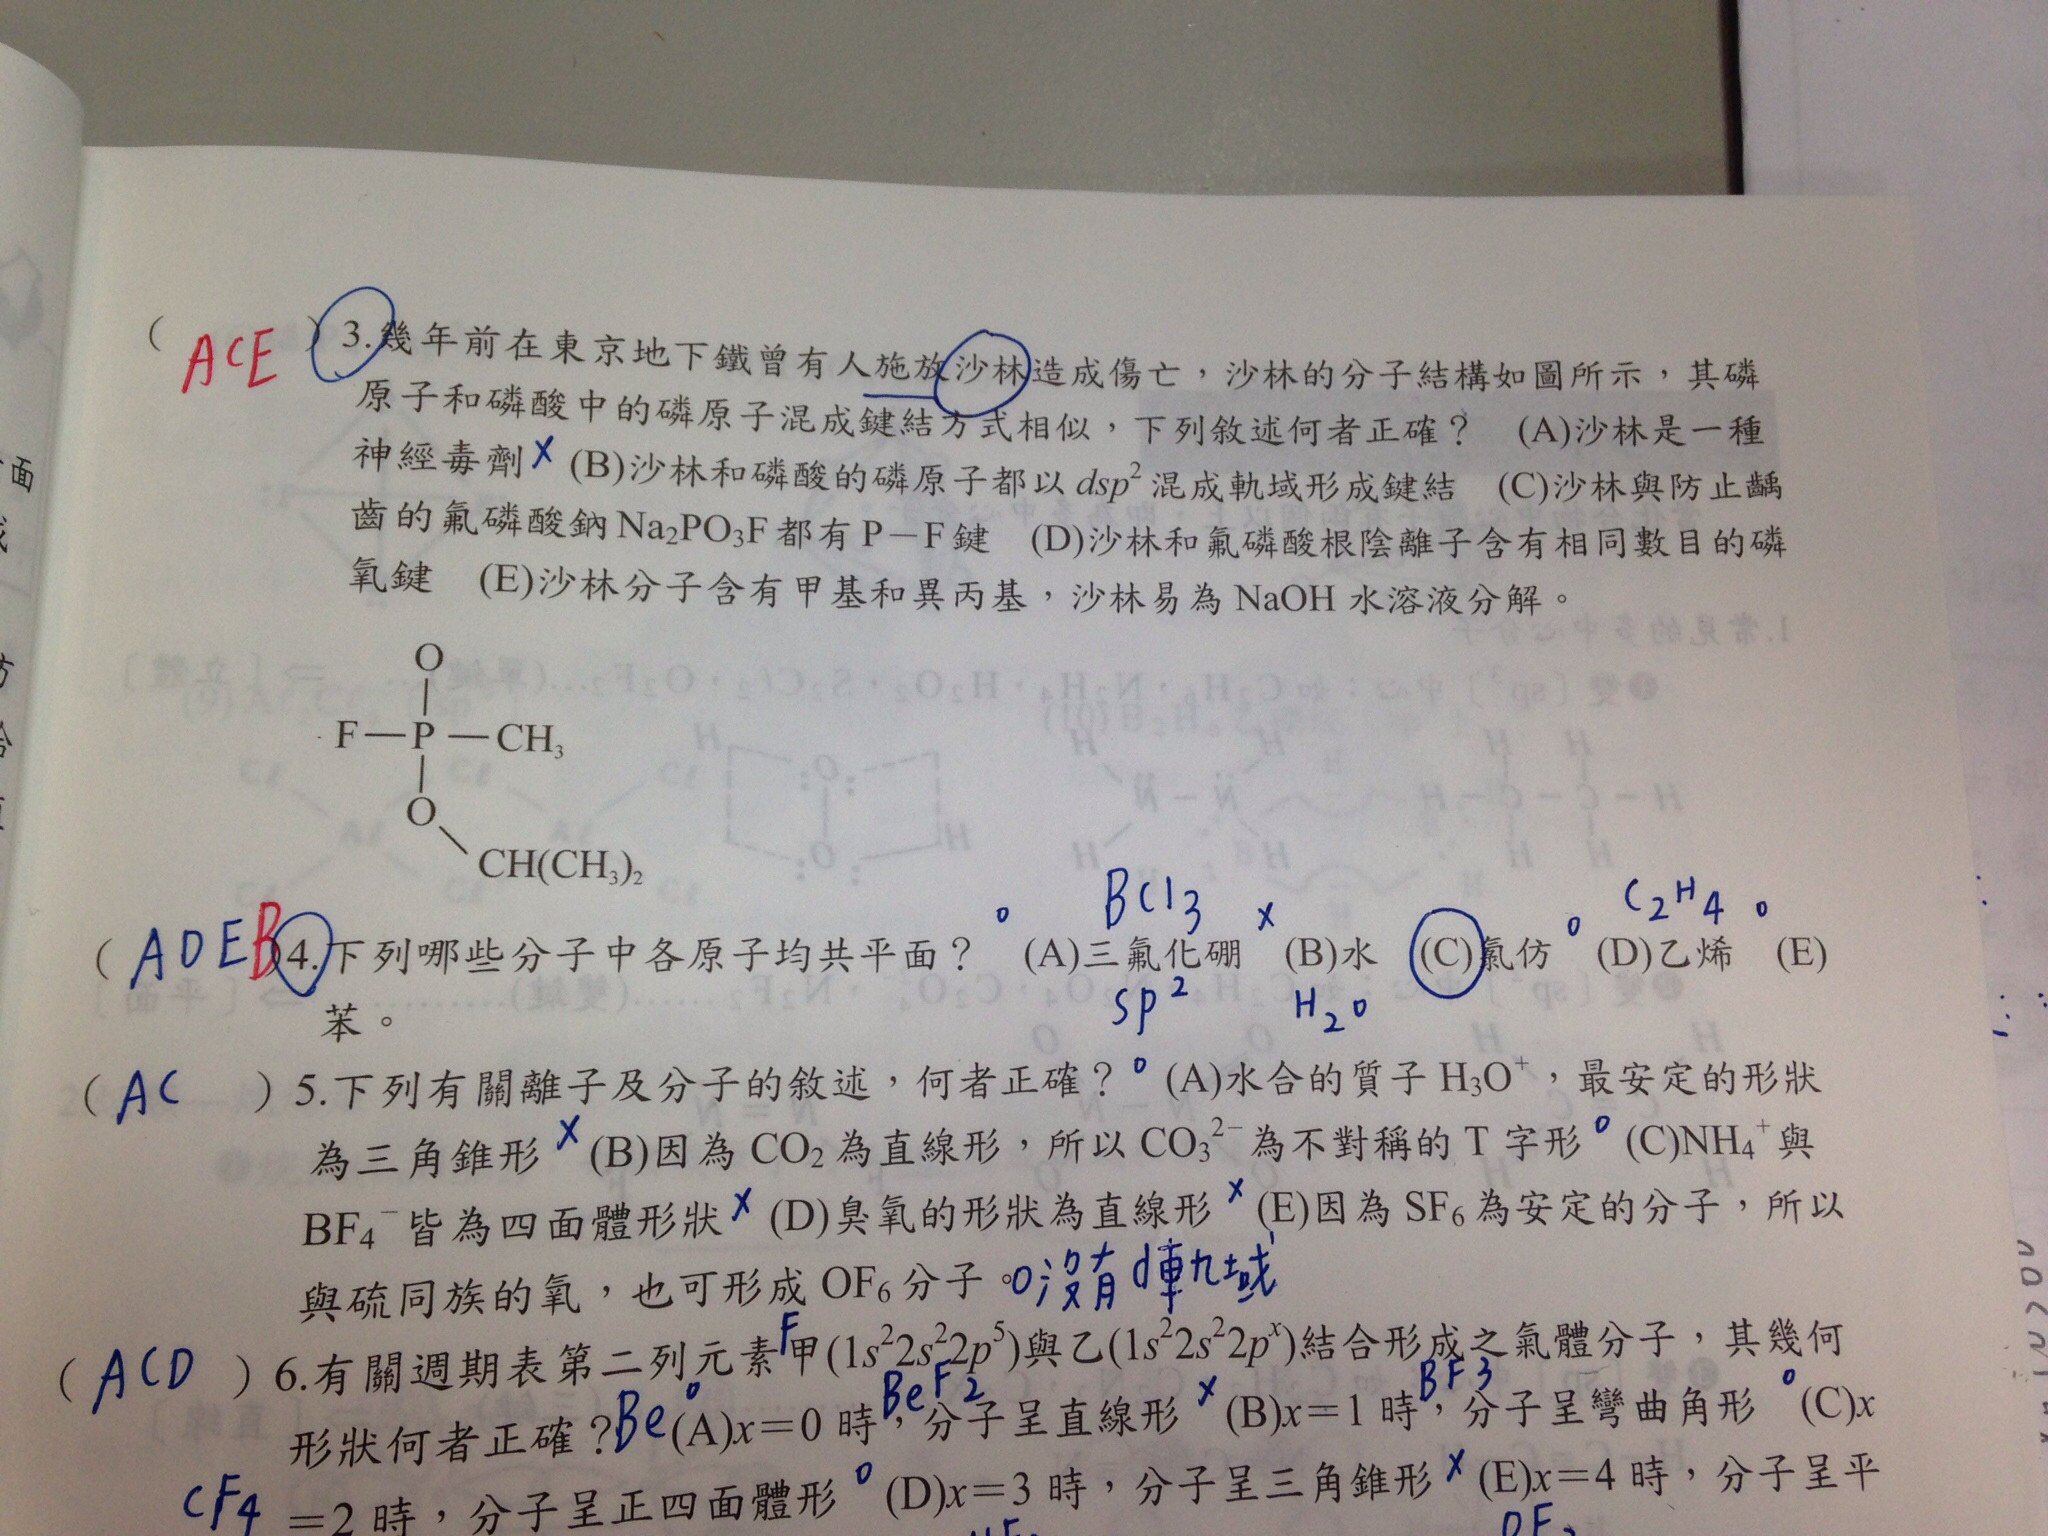 ( ACE ) 3.幾年前在東京地下鐵曾有人施放沙林造成傷亡，沙林的分子結構如圖所示，其磷
原子和磷酸中的磷原子混成鍵結方式相似，下列敘述何者正確？ (A)沙林是一種
神經毒劑 x (B)沙林和磷酸的磷原子都以 dsp² 混成軌域形成鍵結 (C)沙林與防止齲
齒的氟磷酸鈉 Na₂PO₃F 都有 P－F 鍵 (D)沙林和氟磷酸根陰離子含有相同數目的磷
氧鍵 (E)沙林分子含有甲基和異丙基，沙林易為 NaOH 水溶液分解。
O
F—P—CH₃
O
CH(CH₃)₂
BCl3 C2H4
( ADEB ) 4.下列哪些分子中各原子均共平面？ o (A)三氟化硼 x (B)水 (C)氯仿 o (D)乙烯 o (E)
sp² H2O
苯。
( AC ) 5.下列有關離子及分子的敘述，何者正確？ o (A)水合的質子 H₃O⁺，最安定的形狀
為三角錐形 x (B)因為 CO₂ 為直線形，所以 CO₃²⁻ 為不對稱的 T 字形 o (C)NH₄⁺ 與
BF₄⁻ 皆為四面體形狀 x (D)臭氧的形狀為直線形 x (E)因為 SF₆ 為安定的分子，所以
與硫同族的氧，也可形成 OF₆ 分子。O沒有d軌域
F
( ACD ) 6.有關週期表第二列元素甲(1s²2s²2p⁵)與乙(1s²2s²2pˣ)結合形成之氣體分子，其幾何
BeF2 BF3
形狀何者正確？Be o (A)x＝0 時，分子呈直線形 x (B)x＝1 時，分子呈彎曲角形 o (C)x
CF4 ＝2 時，分子呈正四面體形 o (D)x＝3 時，分子呈三角錐形 x (E)x＝4 時，分子呈平